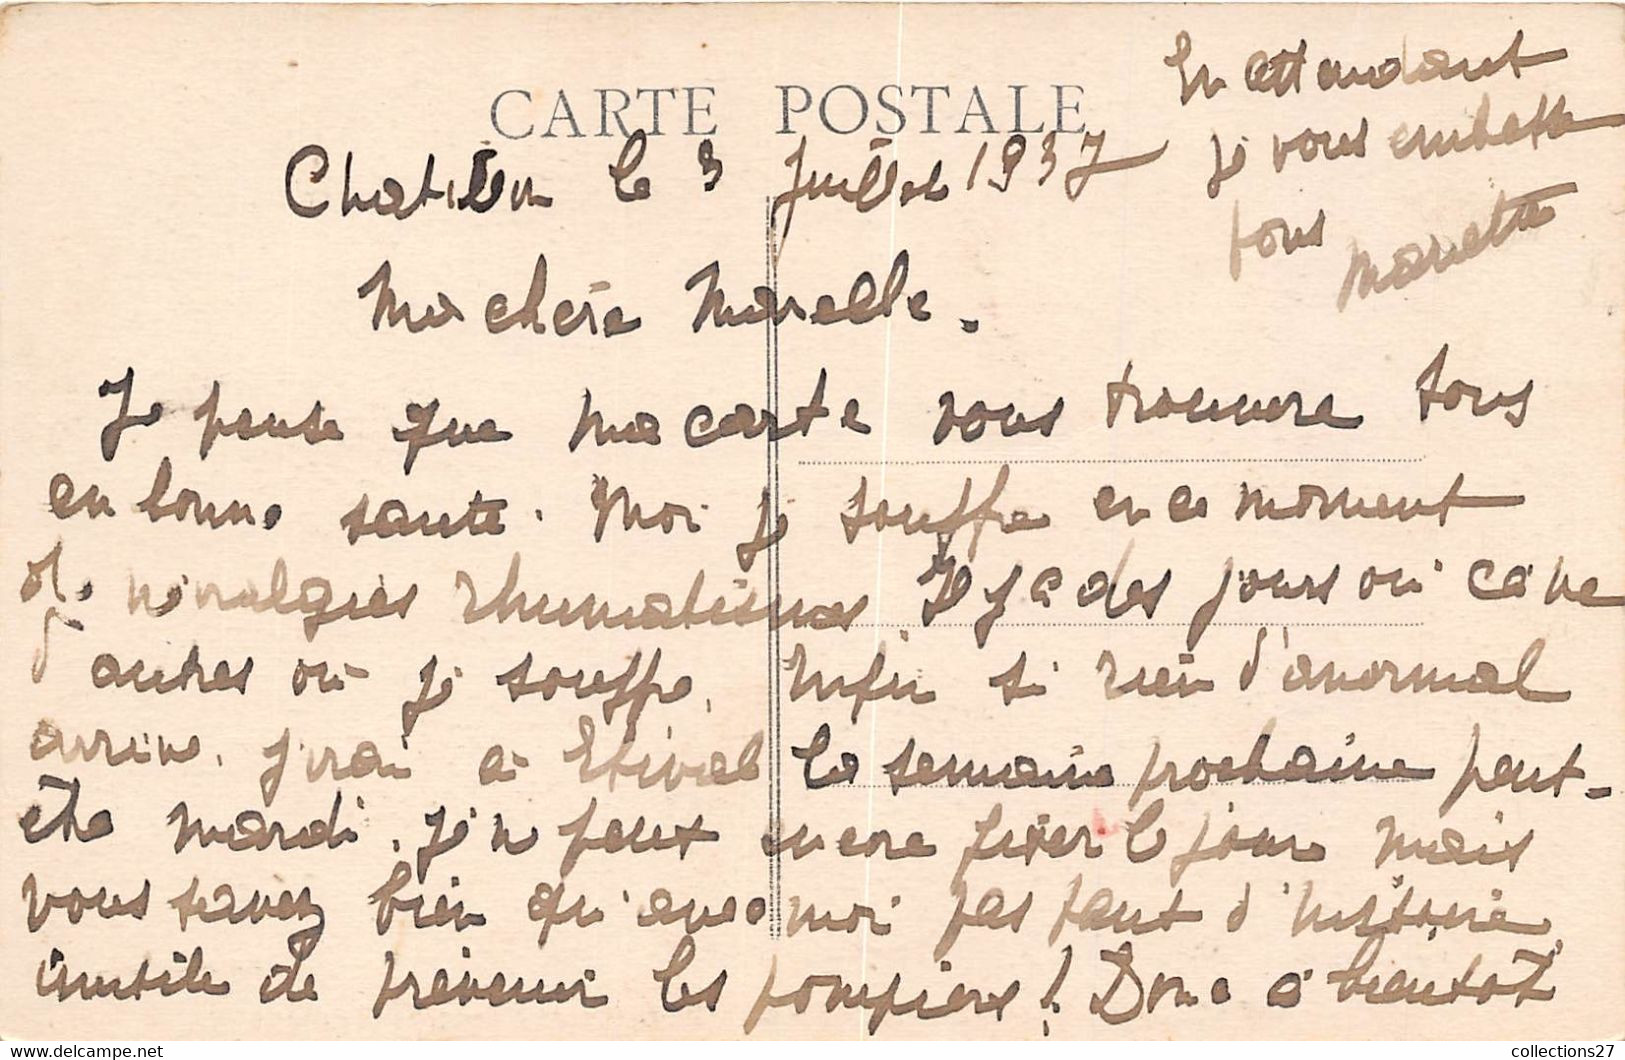 CARTE POSTALE
Chatillon le 3 Juillet 1937
Ma chère Marcelle.
Je pense que ma carte vous trouvera tous
en bonne santé. Moi je souffre en ce moment
de névralgies rhumatismes Il y a des jours où ça va
autres où je souffre. Enfin si rien d'anormal
arrive. j'irai à Etival la semaine prochaine peut-
être mardi. Je ne peux encore fixer le jour mais
vous savez bien qu'avec moi pas tant d'histoire
inutile de prévenir les pompiers! Donc à bientôt
En attendant
je vous embrasse
tous
collections27